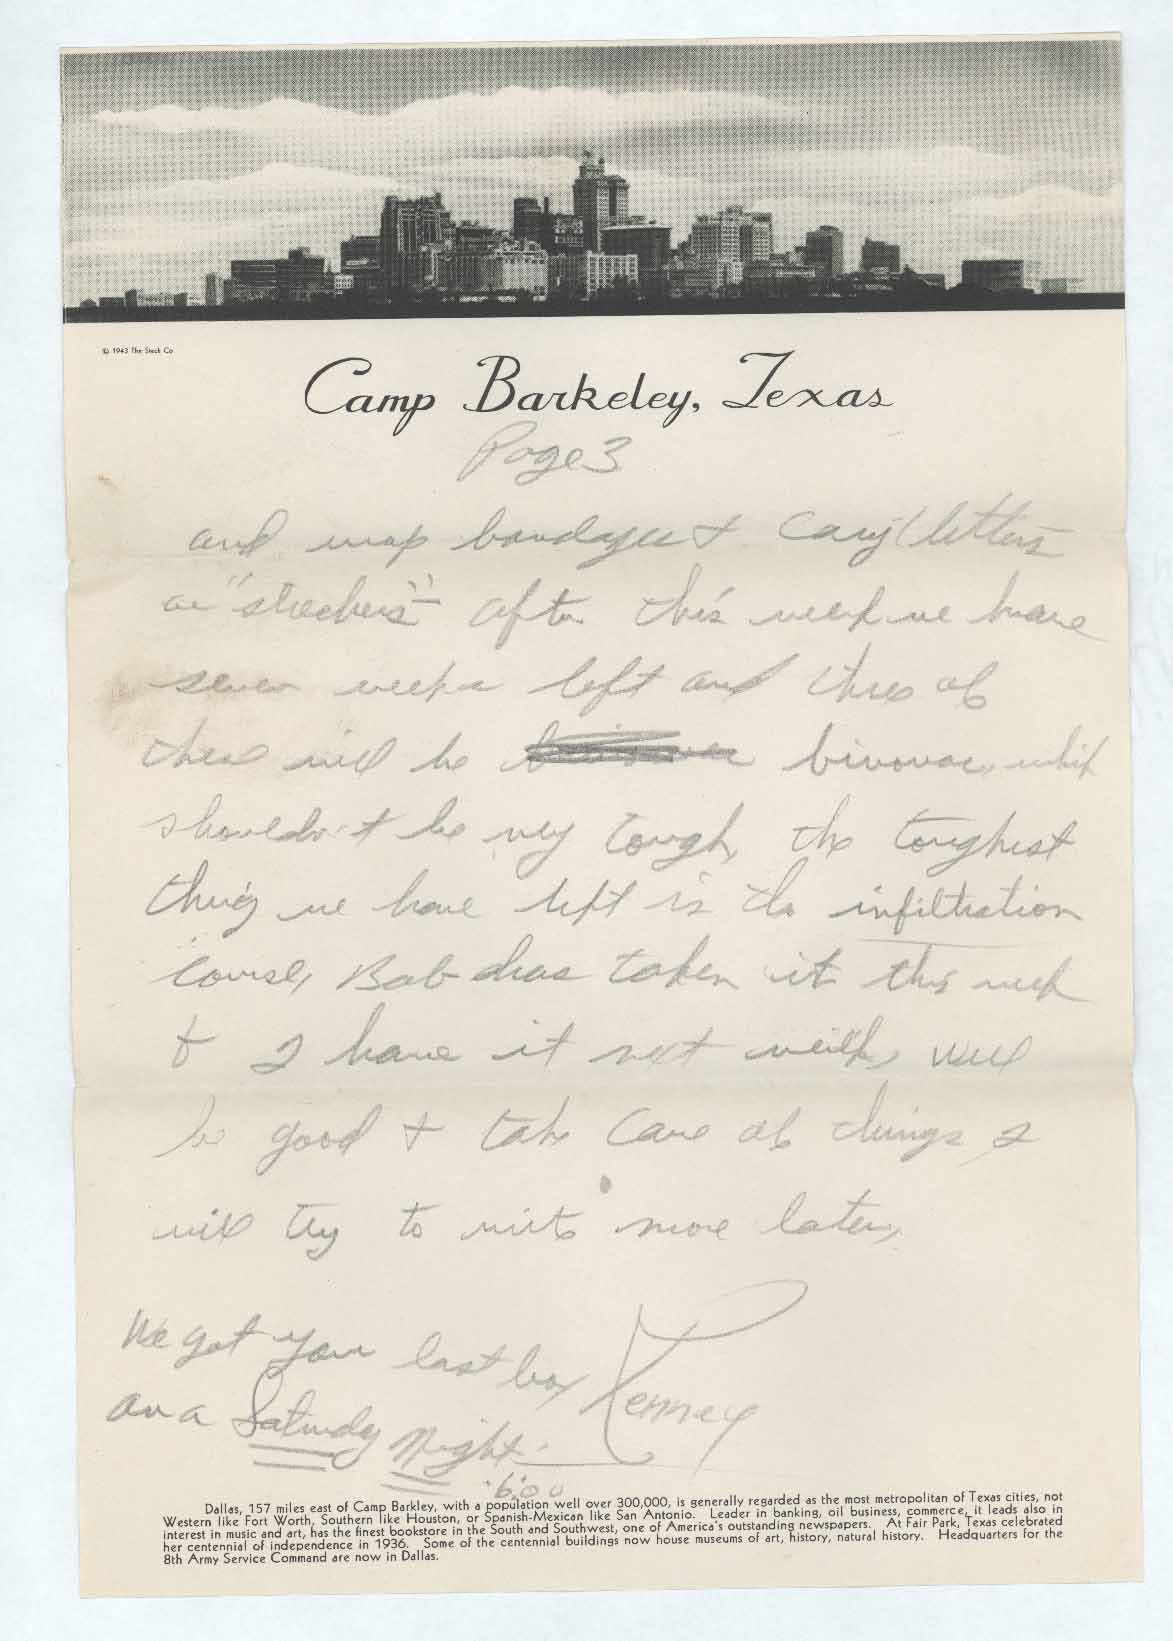 © 1943 The Steck Co
Camp Barkeley, Texas
Page 3
and wrap bandages + cary litters
or "strechers" After this week we have
seven weeks left and three of
these will be bivouac, which
shouldn't be very tough, the toughest
thing we have left is the infiltration
course, Bob has taken it this week
+ I have it next week, well
be good + take care of things I
will try to write more later,
We got your last box
on a Saturday Night
6:00
Kenney
Dallas, 157 miles east of Camp Barkley, with a population well over 300,000, is generally regarded as the most metropolitan of Texas cities, not
Western like Fort Worth, Southern like Houston, or Spanish-Mexican like San Antonio. Leader in banking, oil business, commerce, it leads also in
interest in music and art, has the finest bookstore in the South and Southwest, one of America's outstanding newspapers. At Fair Park, Texas celebrated
her centennial of independence in 1936. Some of the centennial buildings now house museums of art, history, natural history. Headquarters for the
8th Army Service Command are now in Dallas.